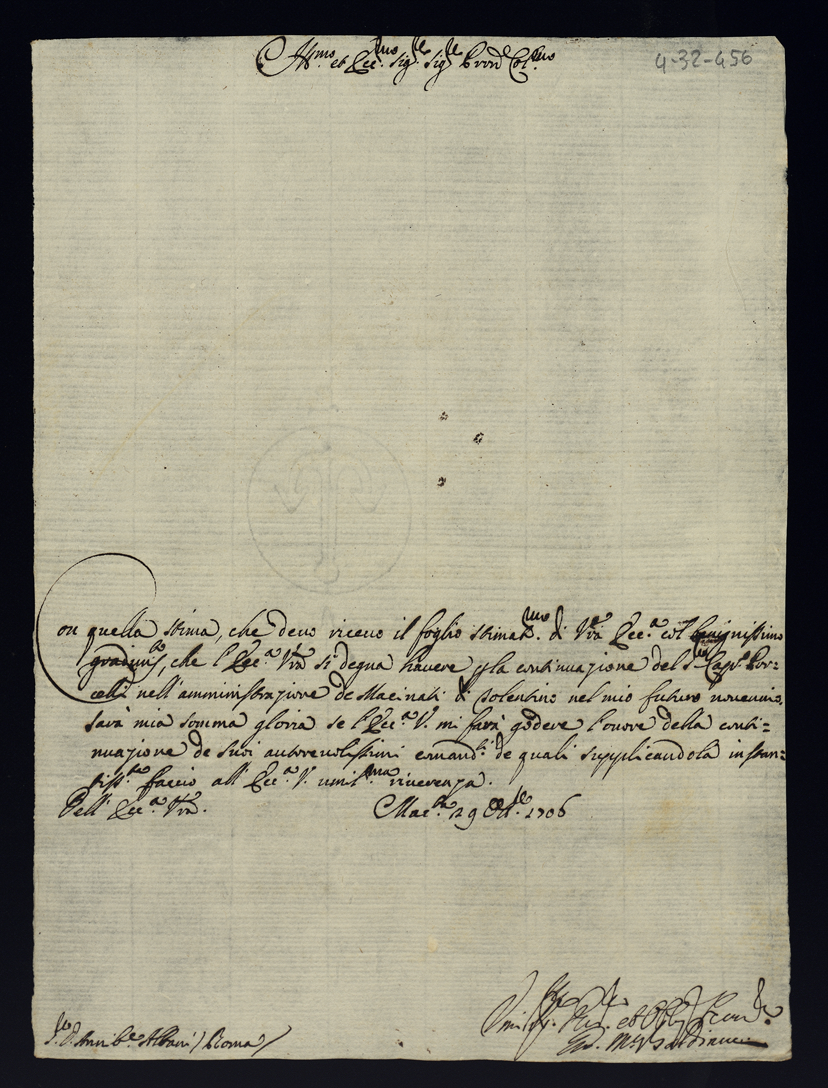 Ill.mo et Ecc.mo Sig.re Sig.re Pron Col.mo
4-32-456
Con quella stima, che devo ricevo il foglio stimat.mo di Vra Ecc.a col benignissimo
gradim.to, che l'Ecc.a Vra si degna havere p la continuazione del S. Cap. Por=
celli nell'amministrazione de Macinati di Tolentino nel mio futuro novennio,
sarà mia somma gloria se l'Ecc.a V. mi farà godere l'onore della conti=
nuazione de suoi autorevolissimi comand.i de quali supplicandola instan=
tiss.te faccio all'Ecc.a V. umil.ma riverenza.
Dell'Ecc.a Vra.
Mac.ta 29 Ott.re 1706
S.r D. Annib.e Albani / Roma /
Umiliss. et Obl. Ser.re